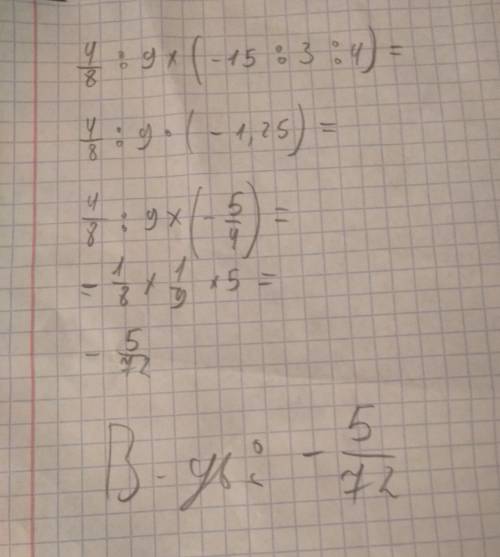 4/8 : 9 × (-15 : 3 : 4) =
4/8 : 9 · (-1,25) =
4/8 : 9 × (-5/4) =
-1/8 × 1/9 × 5 =
-5/72
В-дь: -5/72